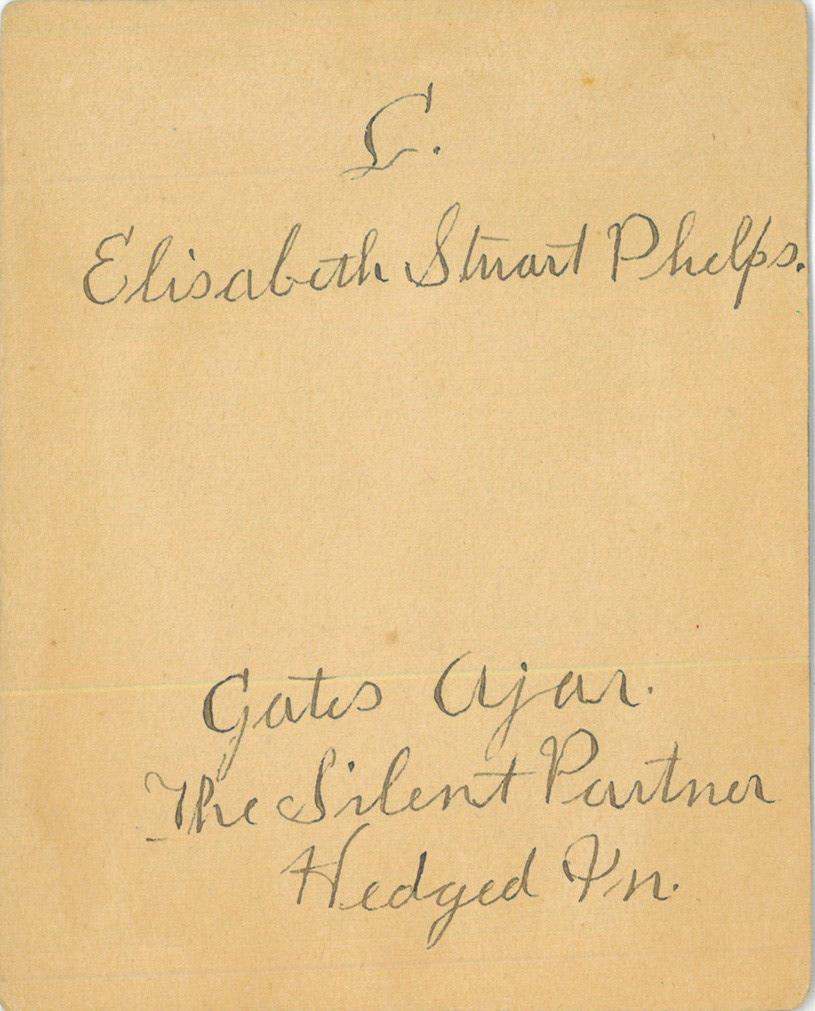 Elisabeth Stuart Phelps.
Gates Ajar.
The Silent Partner
Hedged In.